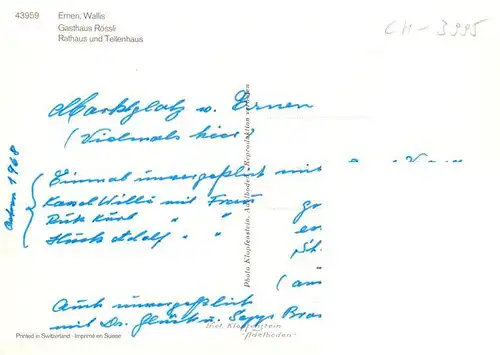 43959 Ernen, Wallis
Gasthaus Rössli
Rathaus und Tellenhaus
CH-3995
Marktplatz v. Ernen
(Vielmals hier)
1968
Einmal unvergeßlich mit
Karl Willi mit Frau
Kurt " "
Adolf " "
(am
Auch unvergeßlich
mit Dr. Glück u. Sepp
Photo Klopfenstein, Adelboden - Reproduktion verboten
Phot. Klopfenstein
"Adelboden"
Printed in Switzerland - Imprimé en Suisse